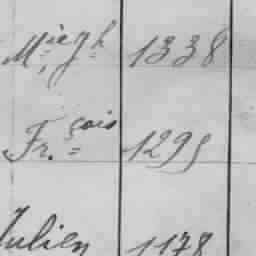 M.iegh 1338
Fr.çois 1295
Julien 1178